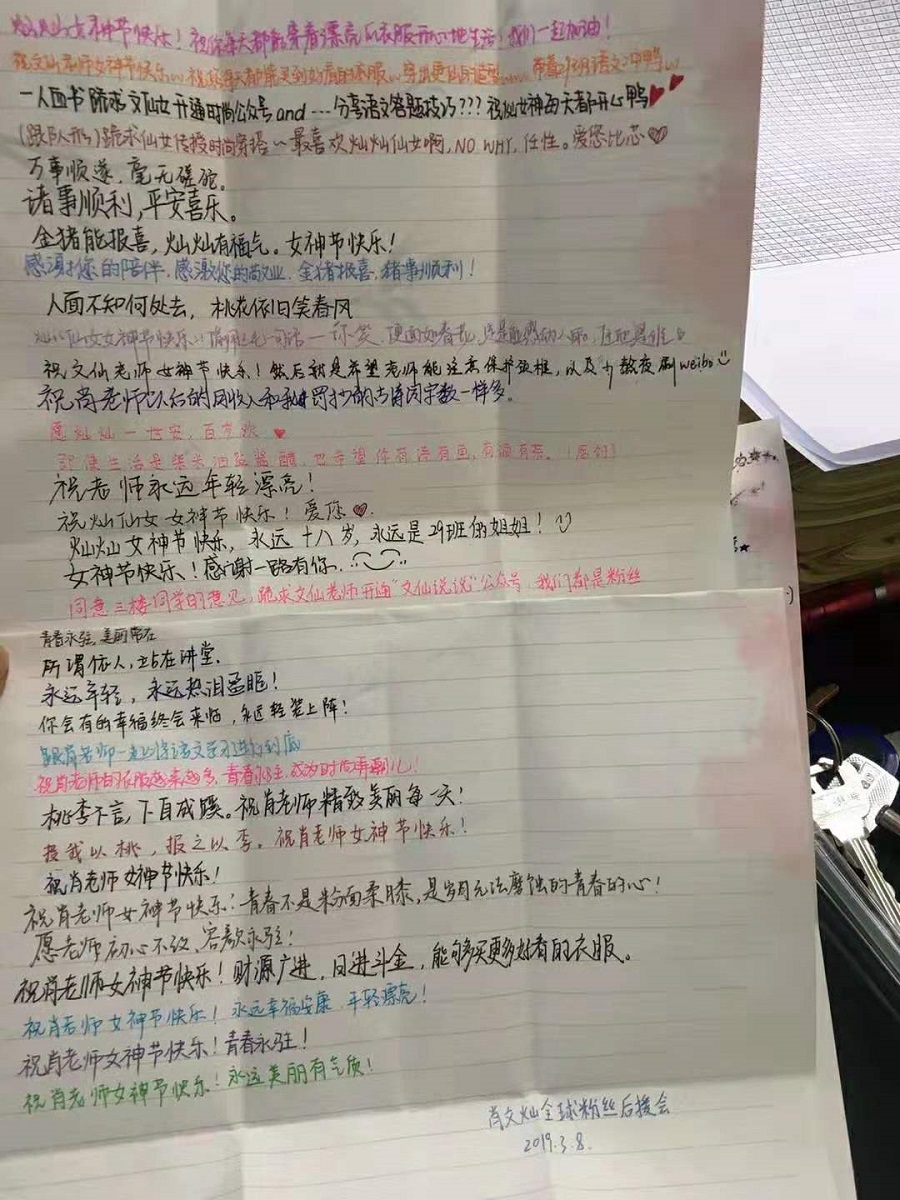 灿灿女神节快乐！祝你每天都能穿着漂亮的衣服开心地生活！我们一起加油！
祝文灿老师女神节快乐 祝你每天都能买到好看的衣服 穿出更仙的造型 带着29班语文冲鸭
一人血书跪求文仙女开通时尚公众号and……分享语文答题技巧???祝仙女神每天都开心鸭
(跟队形)跪求仙女传授时尚穿搭～最喜欢灿灿仙女啊,NO WHY,任性。爱您比芯
万事顺遂,毫无磋砣。
诸事顺利,平安喜乐。
金猪能报喜,灿灿有福气。女神节快乐!
感谢您的陪伴,感激您的敬业,金猪报喜,猪事顺利!
人面不知何处去,桃花依旧笑春风
灿灿仙女女神节快乐!
祝文仙老师女神节快乐!然后就是希望老师能注意保护颈椎,以及少熬夜刷weibo
祝肖老师以后的月收入和我们罚抄的古诗词字数一样多。
愿灿灿一世安,百岁欢
即使生活是柴米油盐酱醋,也希望你有诗有画,有酒有茶。
祝老师永远年轻漂亮!
祝灿仙女女神节快乐!爱您
灿灿女神节快乐,永远十八岁,永远是29班的姐姐!
女神节快乐!感谢一路有你.
同意三楼同学的意见,跪求文仙老师开通"文仙说说"公众号,我们都是粉丝
青春永驻,美丽常在
所谓依人,站在讲堂.
永远年轻,永远热泪盈眶!
你会有的幸福终会来临,永远轻装上阵!
跟肖老师一起将语文学习进行到底
祝肖老师的衣服越来越多,青春永驻,成为时尚弄潮儿!
桃李不言,下自成蹊。祝肖老师精致美丽每一天!
投我以桃,报之以李。祝肖老师女神节快乐!
祝肖老师女神节快乐!
祝肖老师女神节快乐:青春不是粉面柔膝,是岁月无法磨蚀的青春的心!
愿老师初心不改,容颜永驻!
祝肖老师女神节快乐!财源广进,日进斗金,能够买更多好看的衣服。
祝肖老师女神节快乐!永远幸福安康,年轻漂亮!
祝肖老师女神节快乐!青春永驻!
祝肖老师女神节快乐!永远美丽有气质!
肖文灿全球粉丝后援会
2019.3.8.